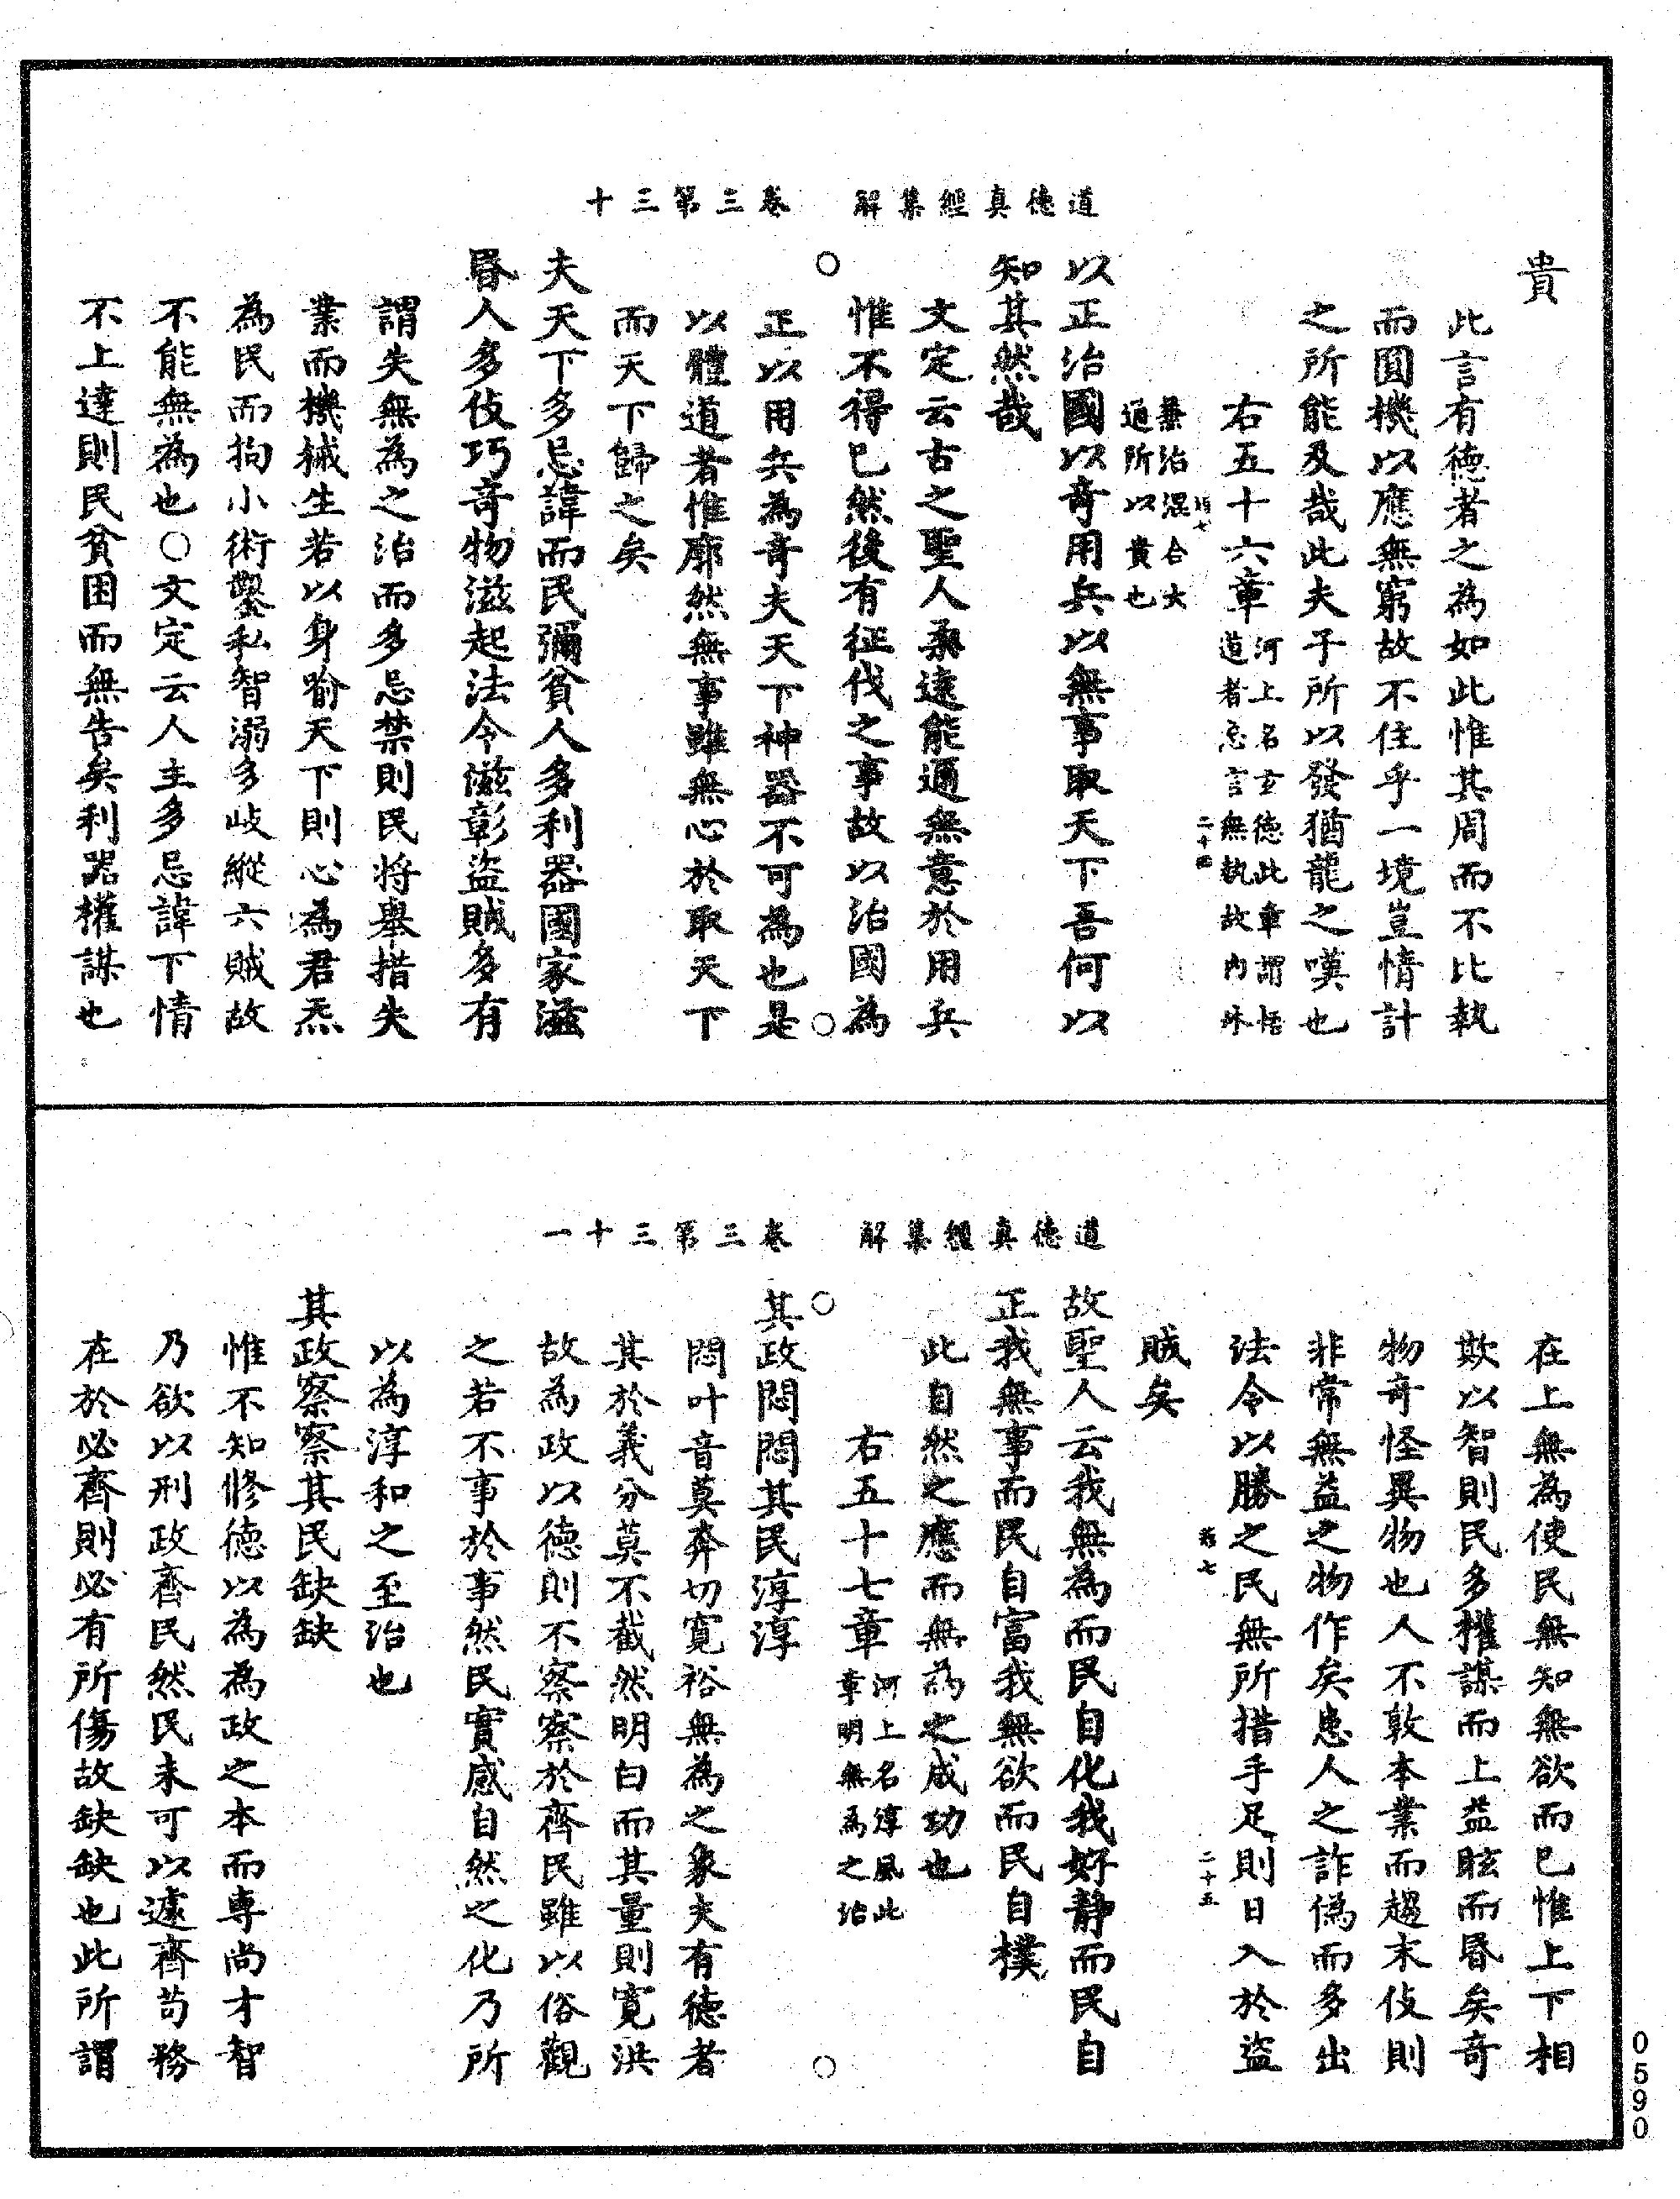 道德真經集解　卷三第三十
貴
此言有德者之為如此惟其周而不比執
而圓機以應無窮故不住乎一境豈情計
之所能及哉此夫子所以發猶龍之嘆也
右五十六章河上名玄德此章謂悟道者忘言無執故內外
兼治混合大通所以貴也
二十四
以正治國以奇用兵以無事取天下吾何以
知其然哉
文定云古之聖人柔遠能邇無意於用兵
惟不得已然後有征伐之事故以治國為
正以用兵為奇夫天下神器不可為也是
以體道者惟廓然無事雖無心於取天下
而天下歸之矣
夫天下多忌諱而民彌貧人多利器國家滋
昬人多伎巧奇物滋起法令滋彰盜賊多有
謂失無為之治而多忌禁則民將舉措失
業而機械生若以身喻天下則心為君炁
為民而拘小術鑿私智溺多岐縱六賊故
不能無為也○文定云人主多忌諱下情
不上達則民貧困而無告矣利器權謀也
道德真經集解　卷三第三十一
在上無為使民無知無欲而已惟上下相
欺以智則民多權謀而上益眩而昬矣奇
物奇怪異物也人不敦本業而趨末伎則
非常無益之物作矣患人之詐偽而多出
法令以勝之民無所措手足則日入於盜
賊矣
二十五
故聖人云我無為而民自化我好靜而民自
正我無事而民自富我無欲而民自樸
此自然之應而無為之成功也
右五十七章河上名淳風此章明無為之治
其政悶悶其民淳淳
悶叶音莫奔切寬裕無為之象夫有德者
其於義分莫不截然明白而其量則寬洪
故為政以德則不察察於齊民雖以俗觀
之若不事於事然民實感自然之化乃所
以為淳和之至治也
其政察察其民缺缺
惟不知修德以為為政之本而專尚才智
乃欲以刑政齊民然民未可以遽齊苟務
在於必齊則必有所傷故缺缺也此所謂
0590